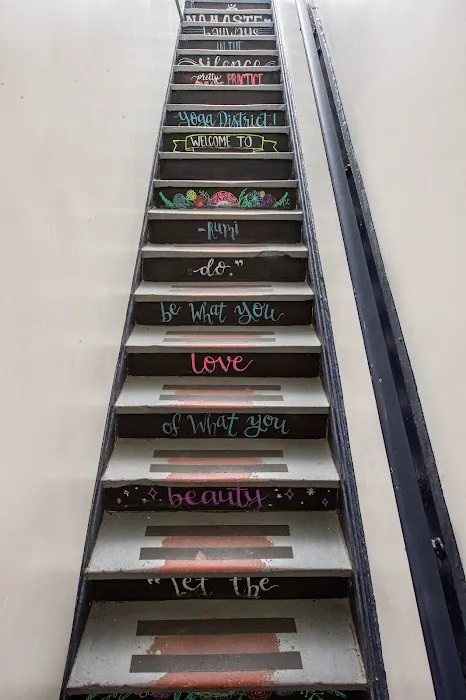 "let the
beauty
of What you
love
be What you
do."
-Rumi
WELCOME TO
Yoga District!
pretty PRACTICE
silence
IN THE
hallways
NAMASTE